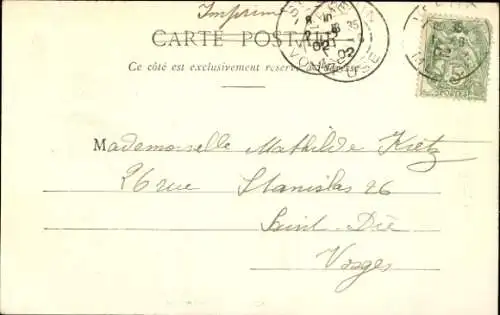 Imprimé
CARTE POSTALE
Ce côté est exclusivement réservé à l'adresse
Mademoiselle Mathilde Kretz
26 rue Stanislas 26
Saint-Dié
Vosges